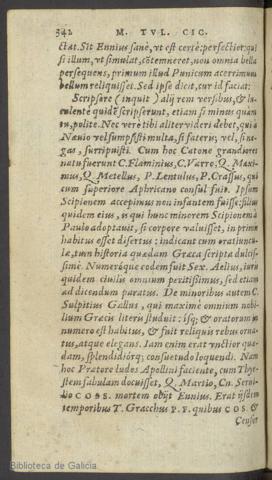 342 M. TVL. CIC.
ctat. Sit Ennius sanè, vt est certè: perfectior: qui
si illum, vt simulat, cõtemneret, non omnia bella
persequens, primum illud Punicum acerrimum
bellum reliquisset. Sed ipse dicit, cur id faciat:
Scripsere (inquit) alij rem versibus, & lu-
culente quidẽ scripserunt, etiam si minus quàm
tu, polite. Nec verè tibi aliter videri debet, qui à
Nauio vel sumpsisti multa, si fateris: vel, si ne-
gas, surripuisti. Cum hoc Catone grandiores
natu fuerunt C. Flaminius, C. Varro, Q. Maxi-
mus, Q. Metellus, P. Lentulus, P. Crassus, qui
cum superiore Aphricano consul fuit. Ipsum
Scipionem accepimus non infantem fuisse: filius
quidem eius, is qui hunc minorem Scipionem à
Paulo adoptauit, si corpore valuisset, in primis
habitus esset disertus: indicant cum oratiuncu-
læ, tum historia quædam Græca scripta dulcis-
simè. Numeróque eodem fuit Sex. Aelius, iuris
quidem ciuilis omnium peritissimus, sed etiam
ad dicendum paratus. De minoribus autem C.
Sulpitius Gallus, qui maximè omnium nobi-
lium Græcis literis studuit: isq; & oratorum in
numero est habitus, & fuit reliquis rebus orna-
tus, atque elegans. Iam enim erat vnctior quæ-
dam, splendidiórq; consuetudo loquendi. Nam
hoc Prætore ludos Apollini faciente, cum Thye-
stem fabulam docuisset, Q. Martio, Cn. Serui-
lio COSS. mortem obijt Ennius. Erat ijsdem
temporibus T. Gracchus P. F. quibus COS. &
Censor
Biblioteca de Galicia